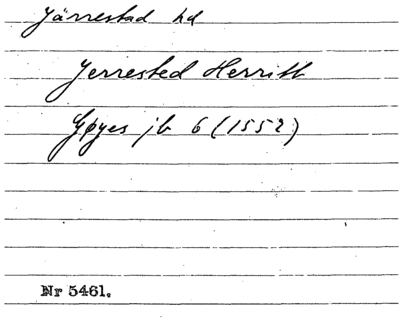 Järrestad hd
Jerrested Herritt
Gøyes jb 6 (1552)
Nr 5461.